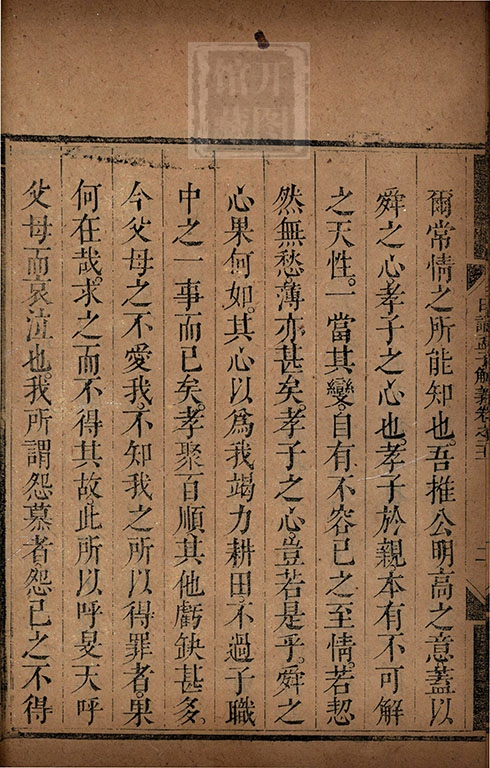 爾常情之所能知也。吾推公明高之意蓋以
舜之心孝子之心也孝子於親本有不可解
之天性。一當其變。自有不容已之至情。若恝
然無愁薄亦甚矣孝子之心豈若是乎。舜之
心果何如。其心以爲我竭力耕田。不過子職
中之一事而已矣。孝聚百順其他虧缺甚多。
今父母之不愛我。不知我之所以得罪者。果
何在哉。求之而不得其故此所以呼旻天呼
父母而哀泣也。我所謂怨慕者。怨己之不得
日講孟子解義卷之五
二
开图
馆藏